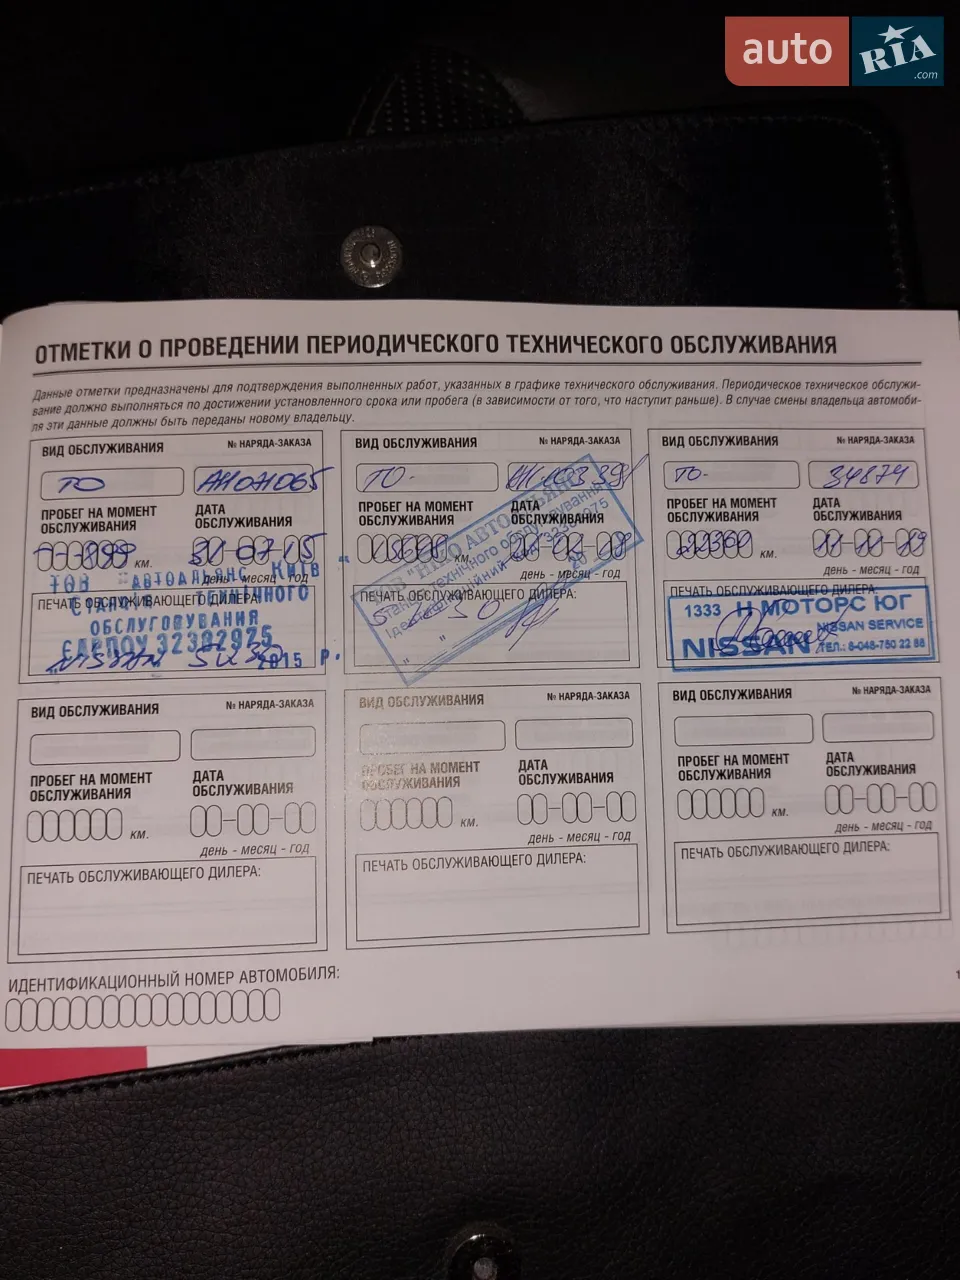 auto RIA.com
ОТМЕТКИ О ПРОВЕДЕНИИ ПЕРИОДИЧЕСКОГО ТЕХНИЧЕСКОГО ОБСЛУЖИВАНИЯ
Данные отметки предназначены для подтверждения выполненных работ, указанных в графике технического обслуживания. Периодическое техническое обслужи-
вание должно выполняться по достижении установленного срока или пробега (в зависимости от того, что наступит раньше). В случае смены владельца автомоби-
ля эти данные должны быть переданы новому владельцу.
ВИД ОБСЛУЖИВАНИЯ № НАРЯДА-ЗАКАЗА
ТО
ПРОБЕГ НА МОМЕНТ ОБСЛУЖИВАНИЯ
ДАТА ОБСЛУЖИВАНИЯ
899 км. 31-07-15
день - месяц - год
ПЕЧАТЬ ОБСЛУЖИВАЮЩЕГО ДИЛЕРА:
ТОВ "АВТОАЛЬЯНС КИЇВ"
ОБСЛУГОВУВАННЯ
2015 р.
ВИД ОБСЛУЖИВАНИЯ № НАРЯДА-ЗАКАЗА
ТО-
ПРОБЕГ НА МОМЕНТ ОБСЛУЖИВАНИЯ
ДАТА ОБСЛУЖИВАНИЯ
км.
день - месяц - год
ПЕЧАТЬ ОБСЛУЖИВАЮЩЕГО ДИЛЕРА:
обслуговування
ВИД ОБСЛУЖИВАНИЯ № НАРЯДА-ЗАКАЗА
ТО- 34874
ПРОБЕГ НА МОМЕНТ ОБСЛУЖИВАНИЯ
ДАТА ОБСЛУЖИВАНИЯ
км.
день - месяц - год
ПЕЧАТЬ ОБСЛУЖИВАЮЩЕГО ДИЛЕРА:
1333 Н МОТОРС ЮГ
NISSAN SERVICE
NISSAN ТЕЛ.: 8-048-750 22 88
ВИД ОБСЛУЖИВАНИЯ № НАРЯДА-ЗАКАЗА
ПРОБЕГ НА МОМЕНТ ОБСЛУЖИВАНИЯ
ДАТА ОБСЛУЖИВАНИЯ
км.
день - месяц - год
ПЕЧАТЬ ОБСЛУЖИВАЮЩЕГО ДИЛЕРА:
ВИД ОБСЛУЖИВАНИЯ № НАРЯДА-ЗАКАЗА
ПРОБЕГ НА МОМЕНТ ОБСЛУЖИВАНИЯ
ДАТА ОБСЛУЖИВАНИЯ
км.
день - месяц - год
ПЕЧАТЬ ОБСЛУЖИВАЮЩЕГО ДИЛЕРА:
ВИД ОБСЛУЖИВАНИЯ № НАРЯДА-ЗАКАЗА
ПРОБЕГ НА МОМЕНТ ОБСЛУЖИВАНИЯ
ДАТА ОБСЛУЖИВАНИЯ
км.
день - месяц - год
ПЕЧАТЬ ОБСЛУЖИВАЮЩЕГО ДИЛЕРА:
ИДЕНТИФИКАЦИОННЫЙ НОМЕР АВТОМОБИЛЯ: